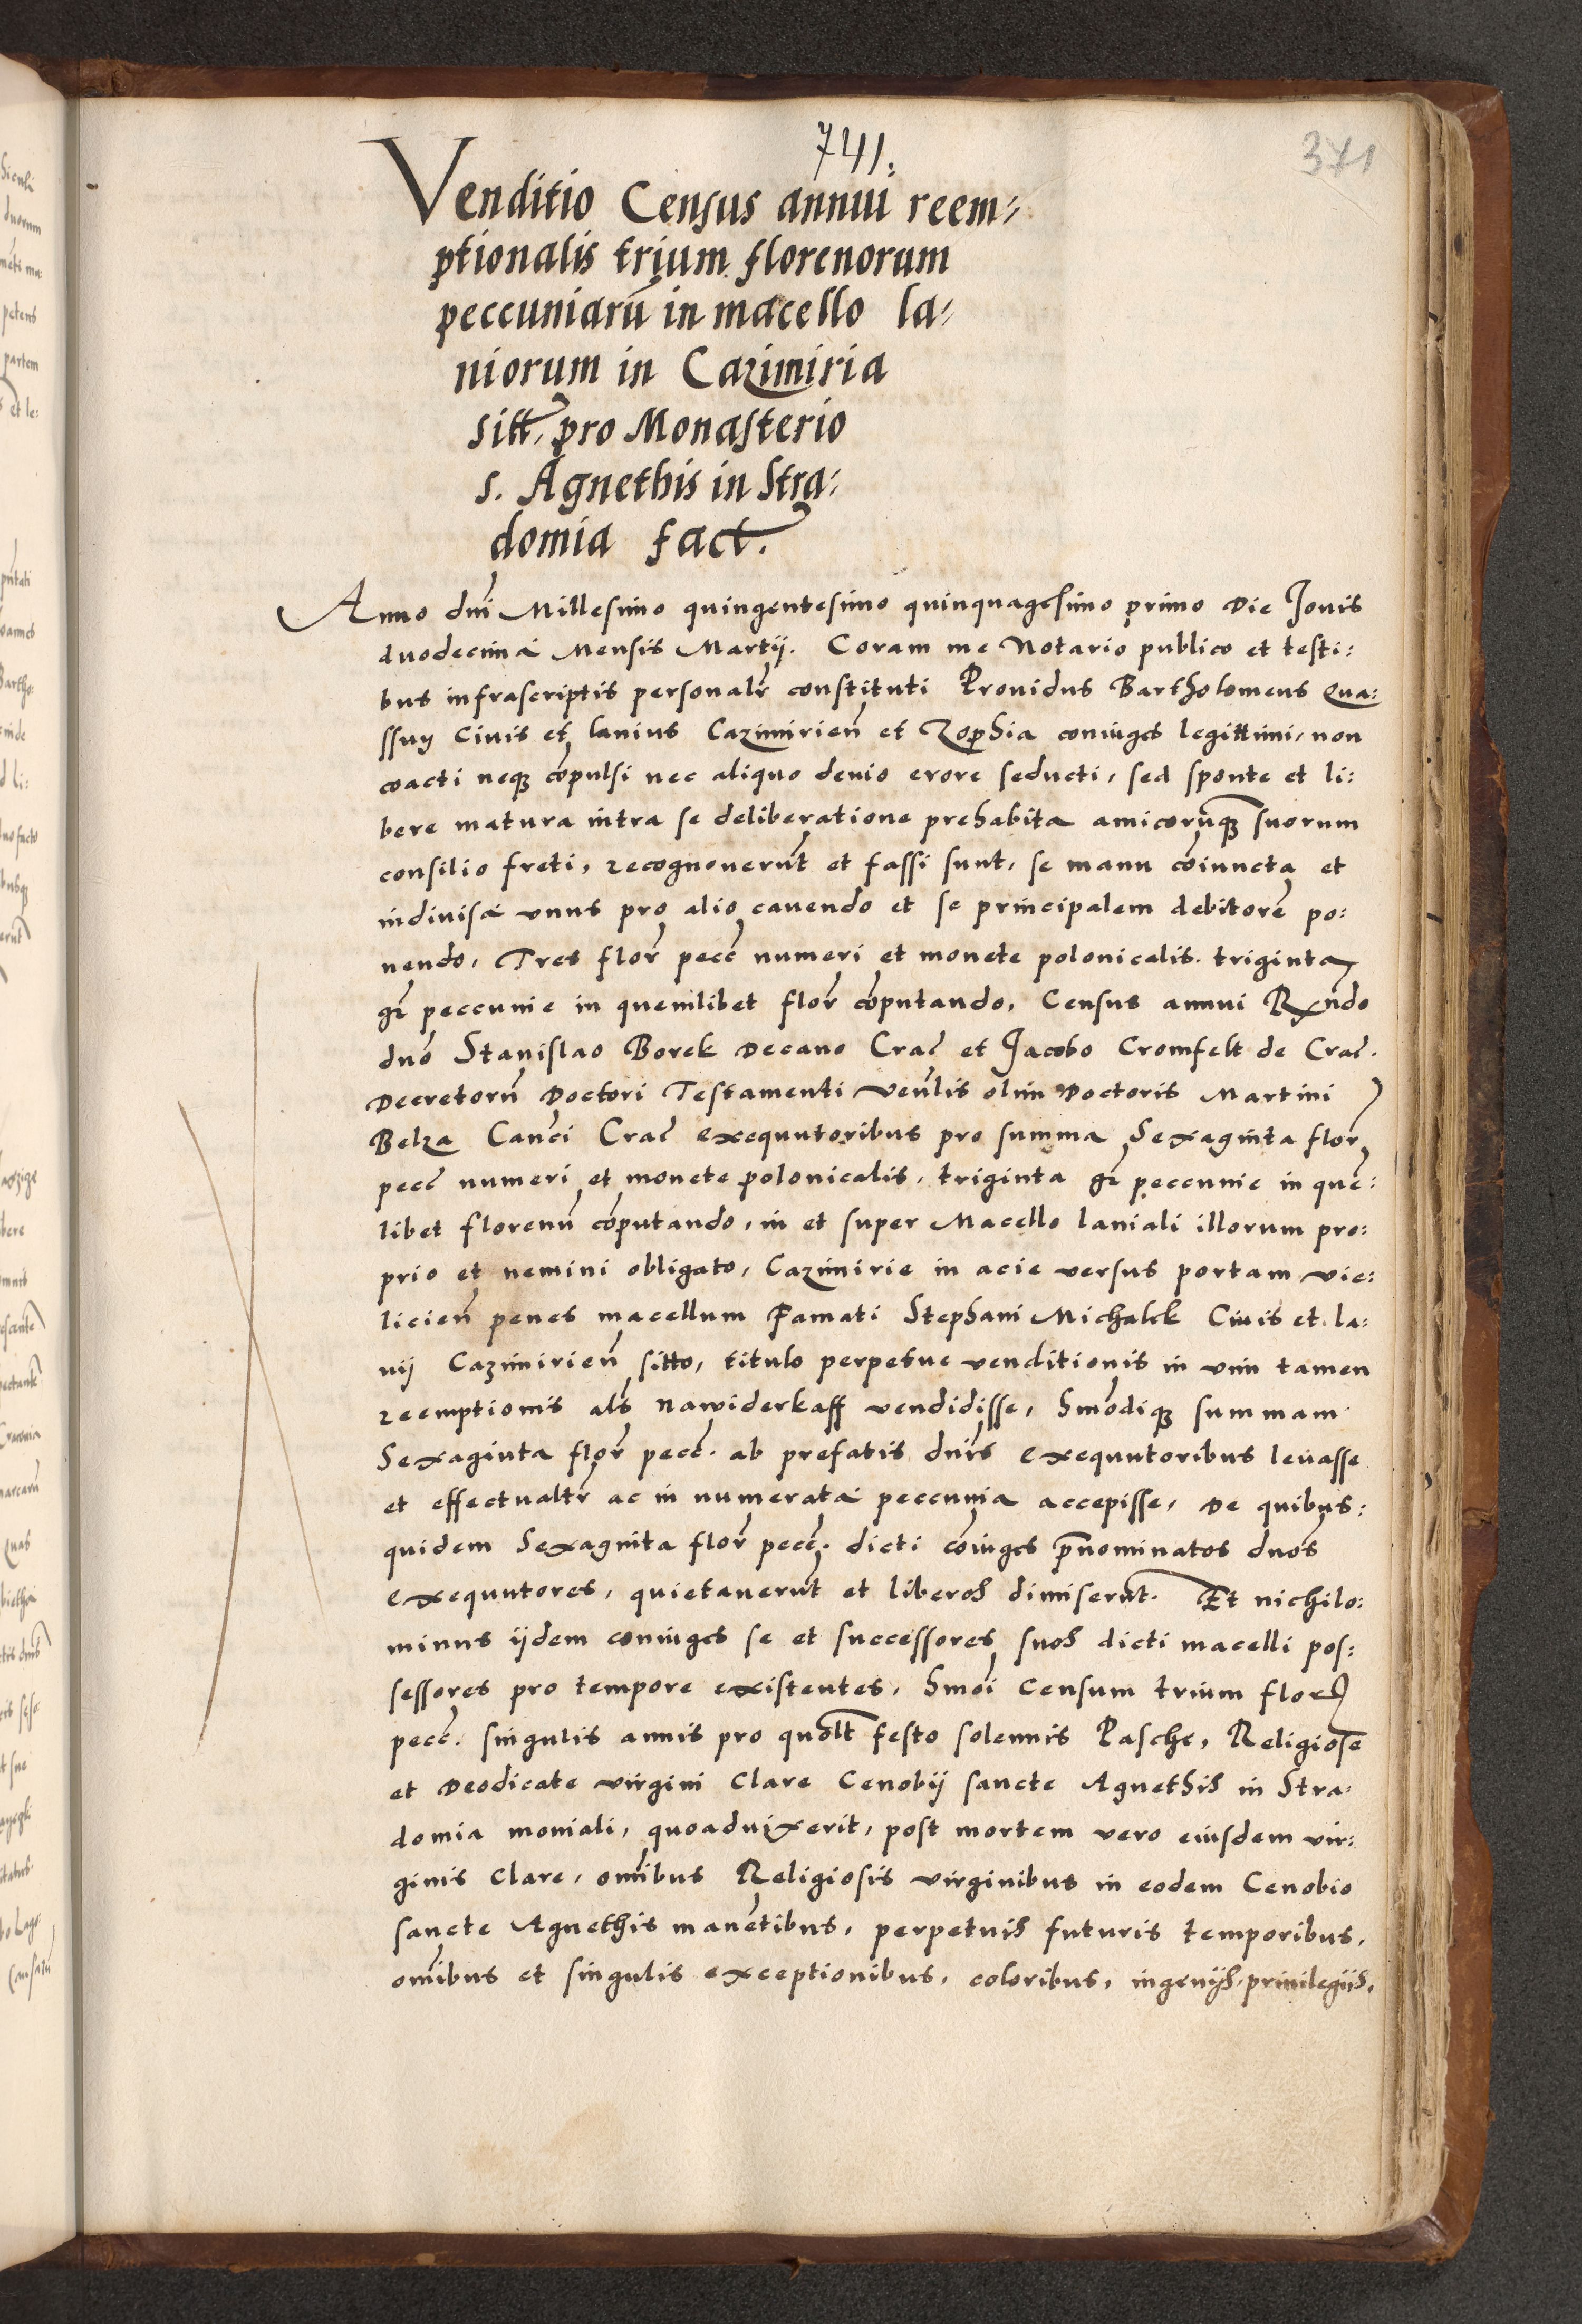 741.
371
Venditio Census annui reem-
ptionalis trium florenorum
peccuniarū in macello la-
niorum in Cazimiria
sitt. pro Monasterio
s. Agnethis in Stra-
domia fact.
Anno dnī Millesimo quingentesimo quinquagesimo primo Die Jouis
duodecima Mensis Martij. Coram me Notario publico et testi:
bus infrascriptis personalr̄ constituti Prouidus Bartholomeus Qua:
ssny Ciuis et lanius Cazimirien̄ et Zophia coniuges legittimi, non
coacti neqꝫ cōpulsi nec aliquo deuio erore seducti, sed sponte et li:
bere matura intra se deliberatione prehabita amicorūqꝫ suorum
consilio freti, recognouerūt et fassi sunt, se manu cōiuncta et
indiuisa vnus pro alio cauendo et se principalem debitorē po:
nendo, Tres flor̄ pecc̄ numeri et monete polonicalis. triginta
gr̄ peccunie in quemlibet flor̄ cōputando, Census annui Rx̄ndo
dnō Stanislao Borek Decano Crac̄ et Jacobo Cromfelt de Crac̄.
Decretorū Doctori Testamenti Ven̄lis olim Doctoris Martini
Belza Canc̄i Crac̄ exequutoribus pro summa Sexaginta flor̄
pecc̄ numeri et monete polonicalis, triginta gr̄ peccunie in quē:
libet florenū cōputando, in et super Macello laniali illorum pro:
prio et nemini obligato, Cazimirie in acie versus portam vie:
licien̄ penes macellum Famati Stephani Michalek Ciuis et la:
nij Cazimirien̄ sitto, titulo perpetue venditionis in vim tamen
reemptionis als̄ nawiderkaff vendidisse, Hmōdiqꝫ summam
Sexaginta flor̄ pecc̄. ab prefatis dnīs exequutoribus leuasse
et effectualtr̄ ac in numerata peccunia accepisse, De quibus:
quidem Sexaginta flor̄ pecc̄. dicti cōiuges p̄nominatos dnōs
exequutores, quietauerūt et liberos dimiserūt. Et nichilo:
minus ijdem coniuges se et successores suos dicti macelli pos:
sessores pro tempore existentes, Hmōi Censum trium flor̄
pecc̄. singulis annis pro quōlt festo solennis Pasche, Religiose
et Deodicate virgini Clare Cenobij sancte Agnethis in Stra-
domia moniali, quoaduixerit, post mortem vero eiusdem vir:
ginis Clare, omībus Religiosis virginibus in eodem Cenobio
sancte Agnethis manētibus, perpetuis futuris temporibus,
omībus et singulis exceptionibus, coloribus, ingenijs, priuilegiis,